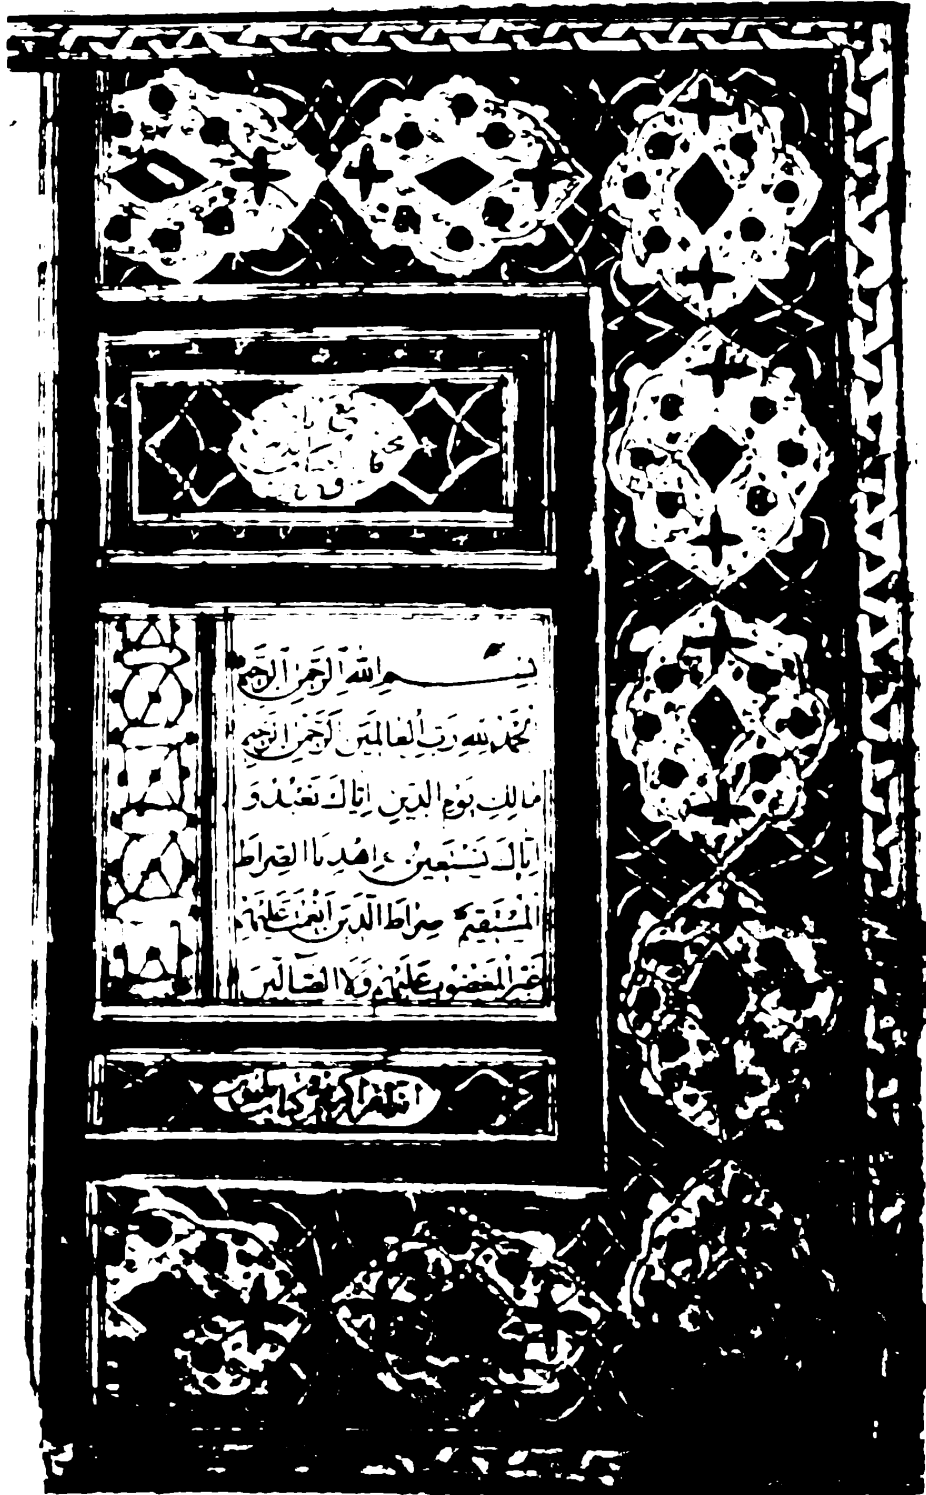 بِسْمِ اللهِ الرَّحْمٰنِ الرَّحِيمِ
الْحَمْدُ لِلّٰهِ رَبِّ الْعَالَمِينَ الرَّحْمٰنِ الرَّحِيمِ
مَالِكِ يَوْمِ الدِّينِ اِيَّاكَ نَعْبُدُ وَ
اِيَّاكَ نَسْتَعِينُ اِهْدِنَا الصِّرَاطَ
الْمُسْتَقِيمَ صِرَاطَ الَّذِينَ اَنْعَمْتَ عَلَيْهِمْ
غَيْرِ الْمَغْضُوبِ عَلَيْهِمْ وَلَا الضَّالِّينَ
انه لقرآن كريم في كتاب مكنون